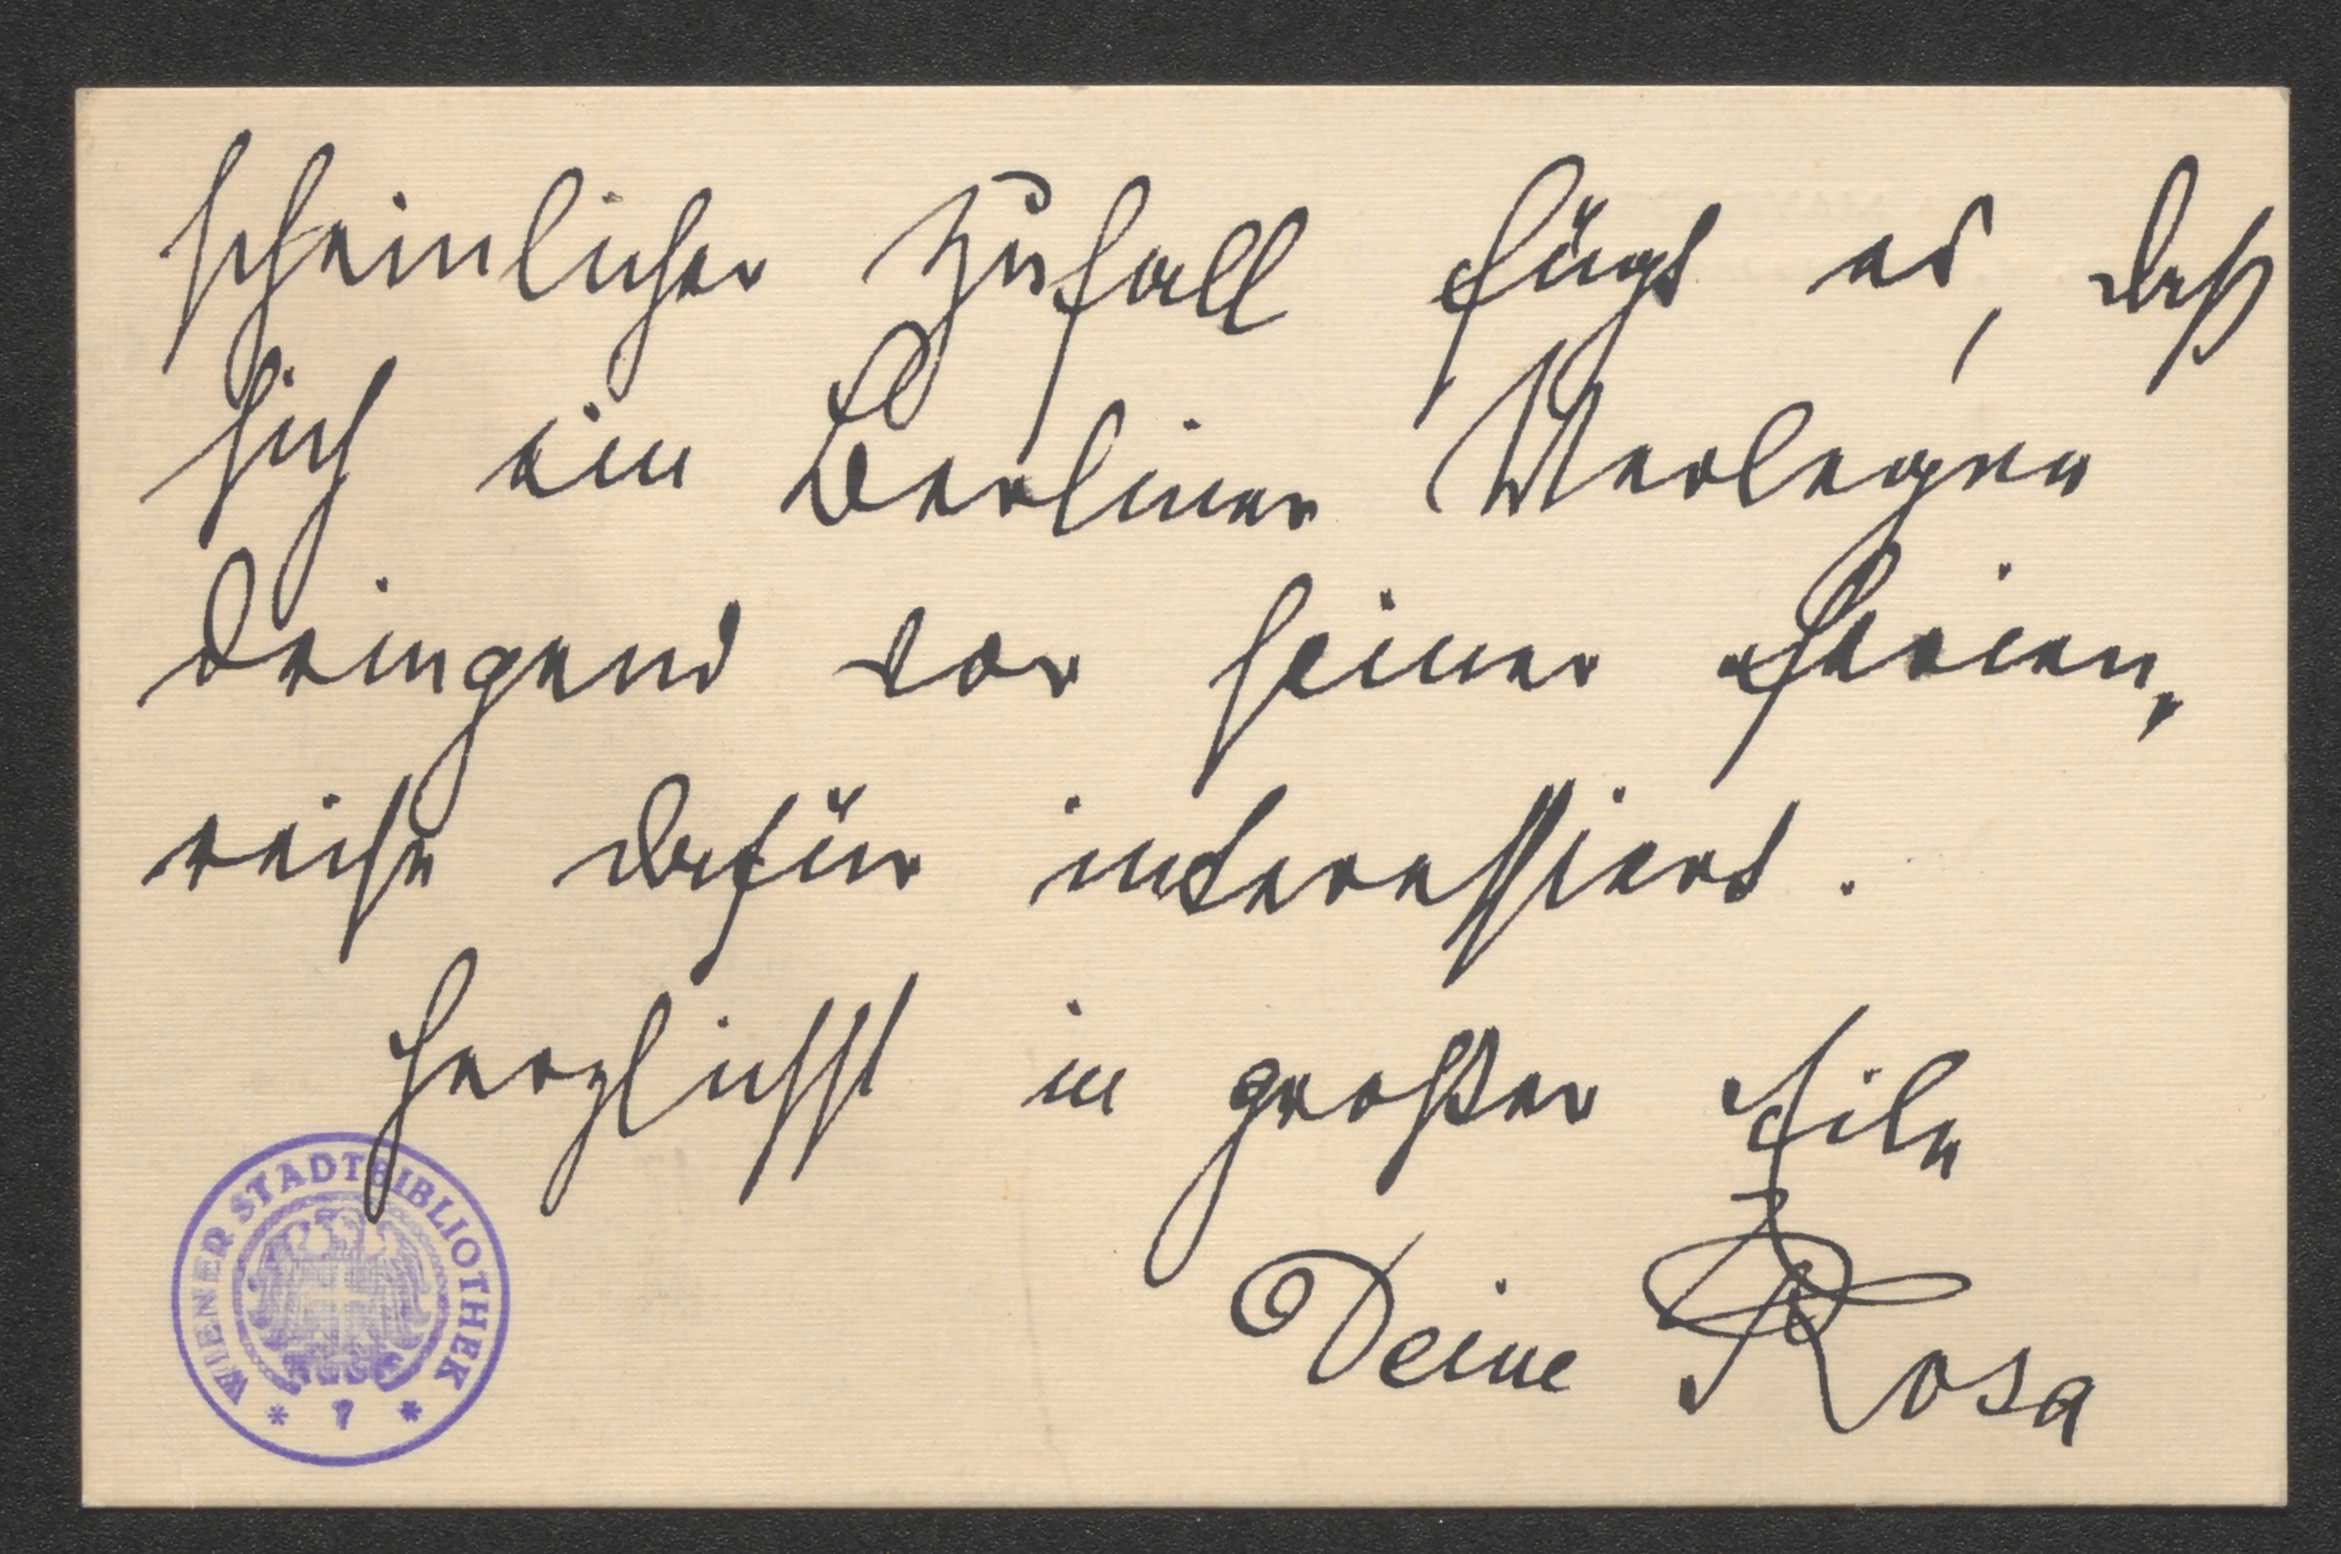 scheinlicher Zufall fügt es, daß
sich ein Berliner Verleger
dringend vor seiner Ferien-
reise dafür interessiert.
Herzlichst in großer Eile
Deine Rosa
WIENER STADTBIBLIOTHEK
* 7 *